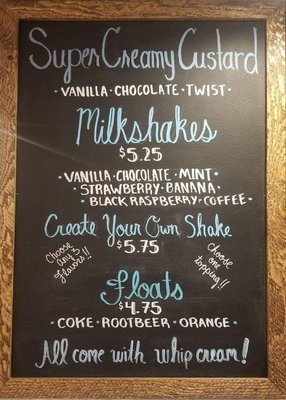 Super Creamy Custard
· VANILLA · CHOCOLATE · TWIST ·
Milkshakes
$5.25
· VANILLA · CHOCOLATE · MINT ·
· STRAWBERRY · BANANA ·
· BLACK RASPBERRY · COFFEE ·
Create Your Own Shake
$5.75
Choose
any 3
flavors!!
Choose
one
topping!!
Floats
$4.75
· COKE · ROOTBEER · ORANGE ·
All come with whip cream!